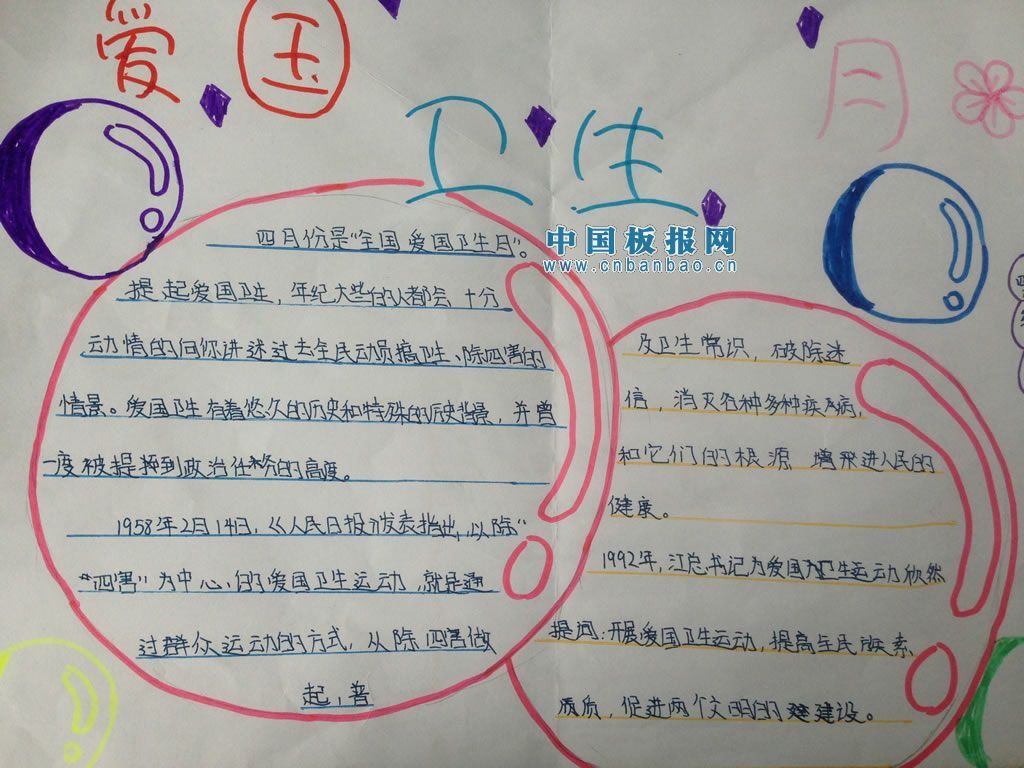 爱国
卫生
月
中国板报网
www.cnbanbao.cn
四月份是“全国爱国卫生月”。
提起爱国卫生，年纪大些的人都会十分
动情的向你讲述过去全民动员搞卫生、除四害的
情景。爱国卫生有着悠久的历史和特殊的历史背景，并曾
一度被提到政治任务的高度。
1958年2月14日，《人民日报》发表指出，以除“
“四害”为中心的爱国卫生运动，就是通
过群众运动的方式，从除四害做
起，普
及卫生常识，破除迷
信，消灭各种多种疾病，
和它们的根源 增进人民的
健康。
1992年，江总书记为爱国卫生运动欣然
提词：开展爱国卫生运动，提高全民族素
质，促进两个文明的建设。